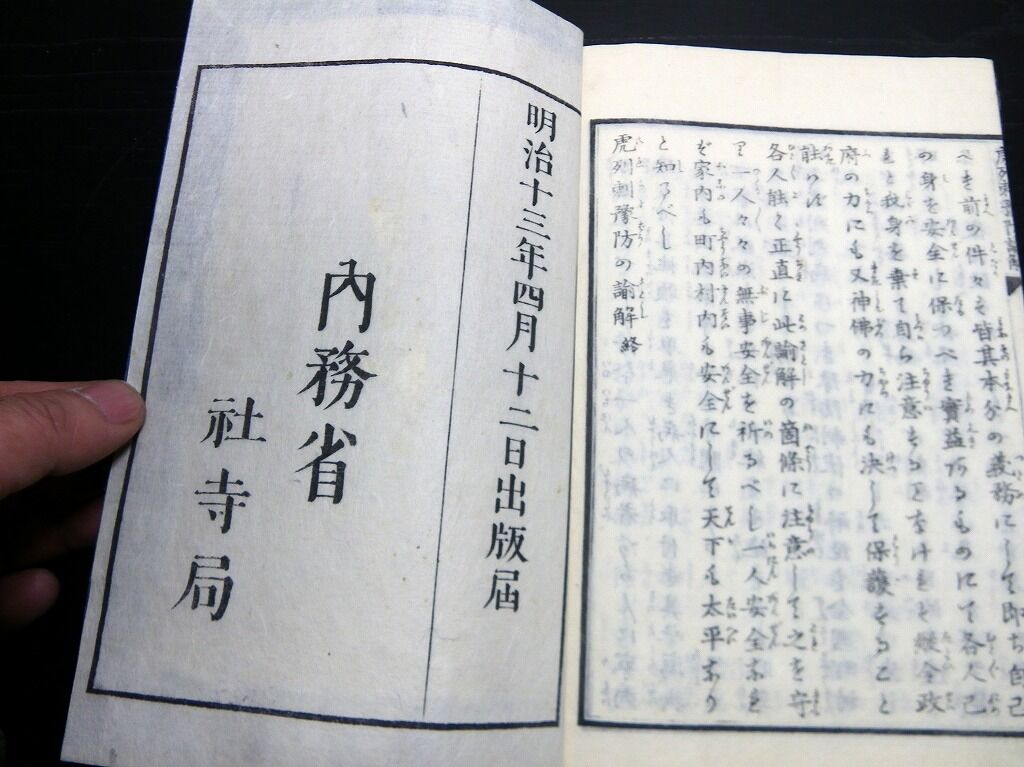 べき前の件々も皆其本分の義務にして即ち自己
の身を安全に保つべき實益あるものにて各人己
もと我身を棄て自ら注意をることなければ縦令政
府の力にも又神佛の力にも決して保護をること
能ハず
各人能く正直に此諭解の箇條に注意して之を守
り一人々々の無事安全を祈るべし一人安全なれ
ば家内も町内村内も安全にして天下も太平なり
と知るべし
虎列剌豫防の諭解 終
明治十三年四月十二日出版届
内務省
社寺局